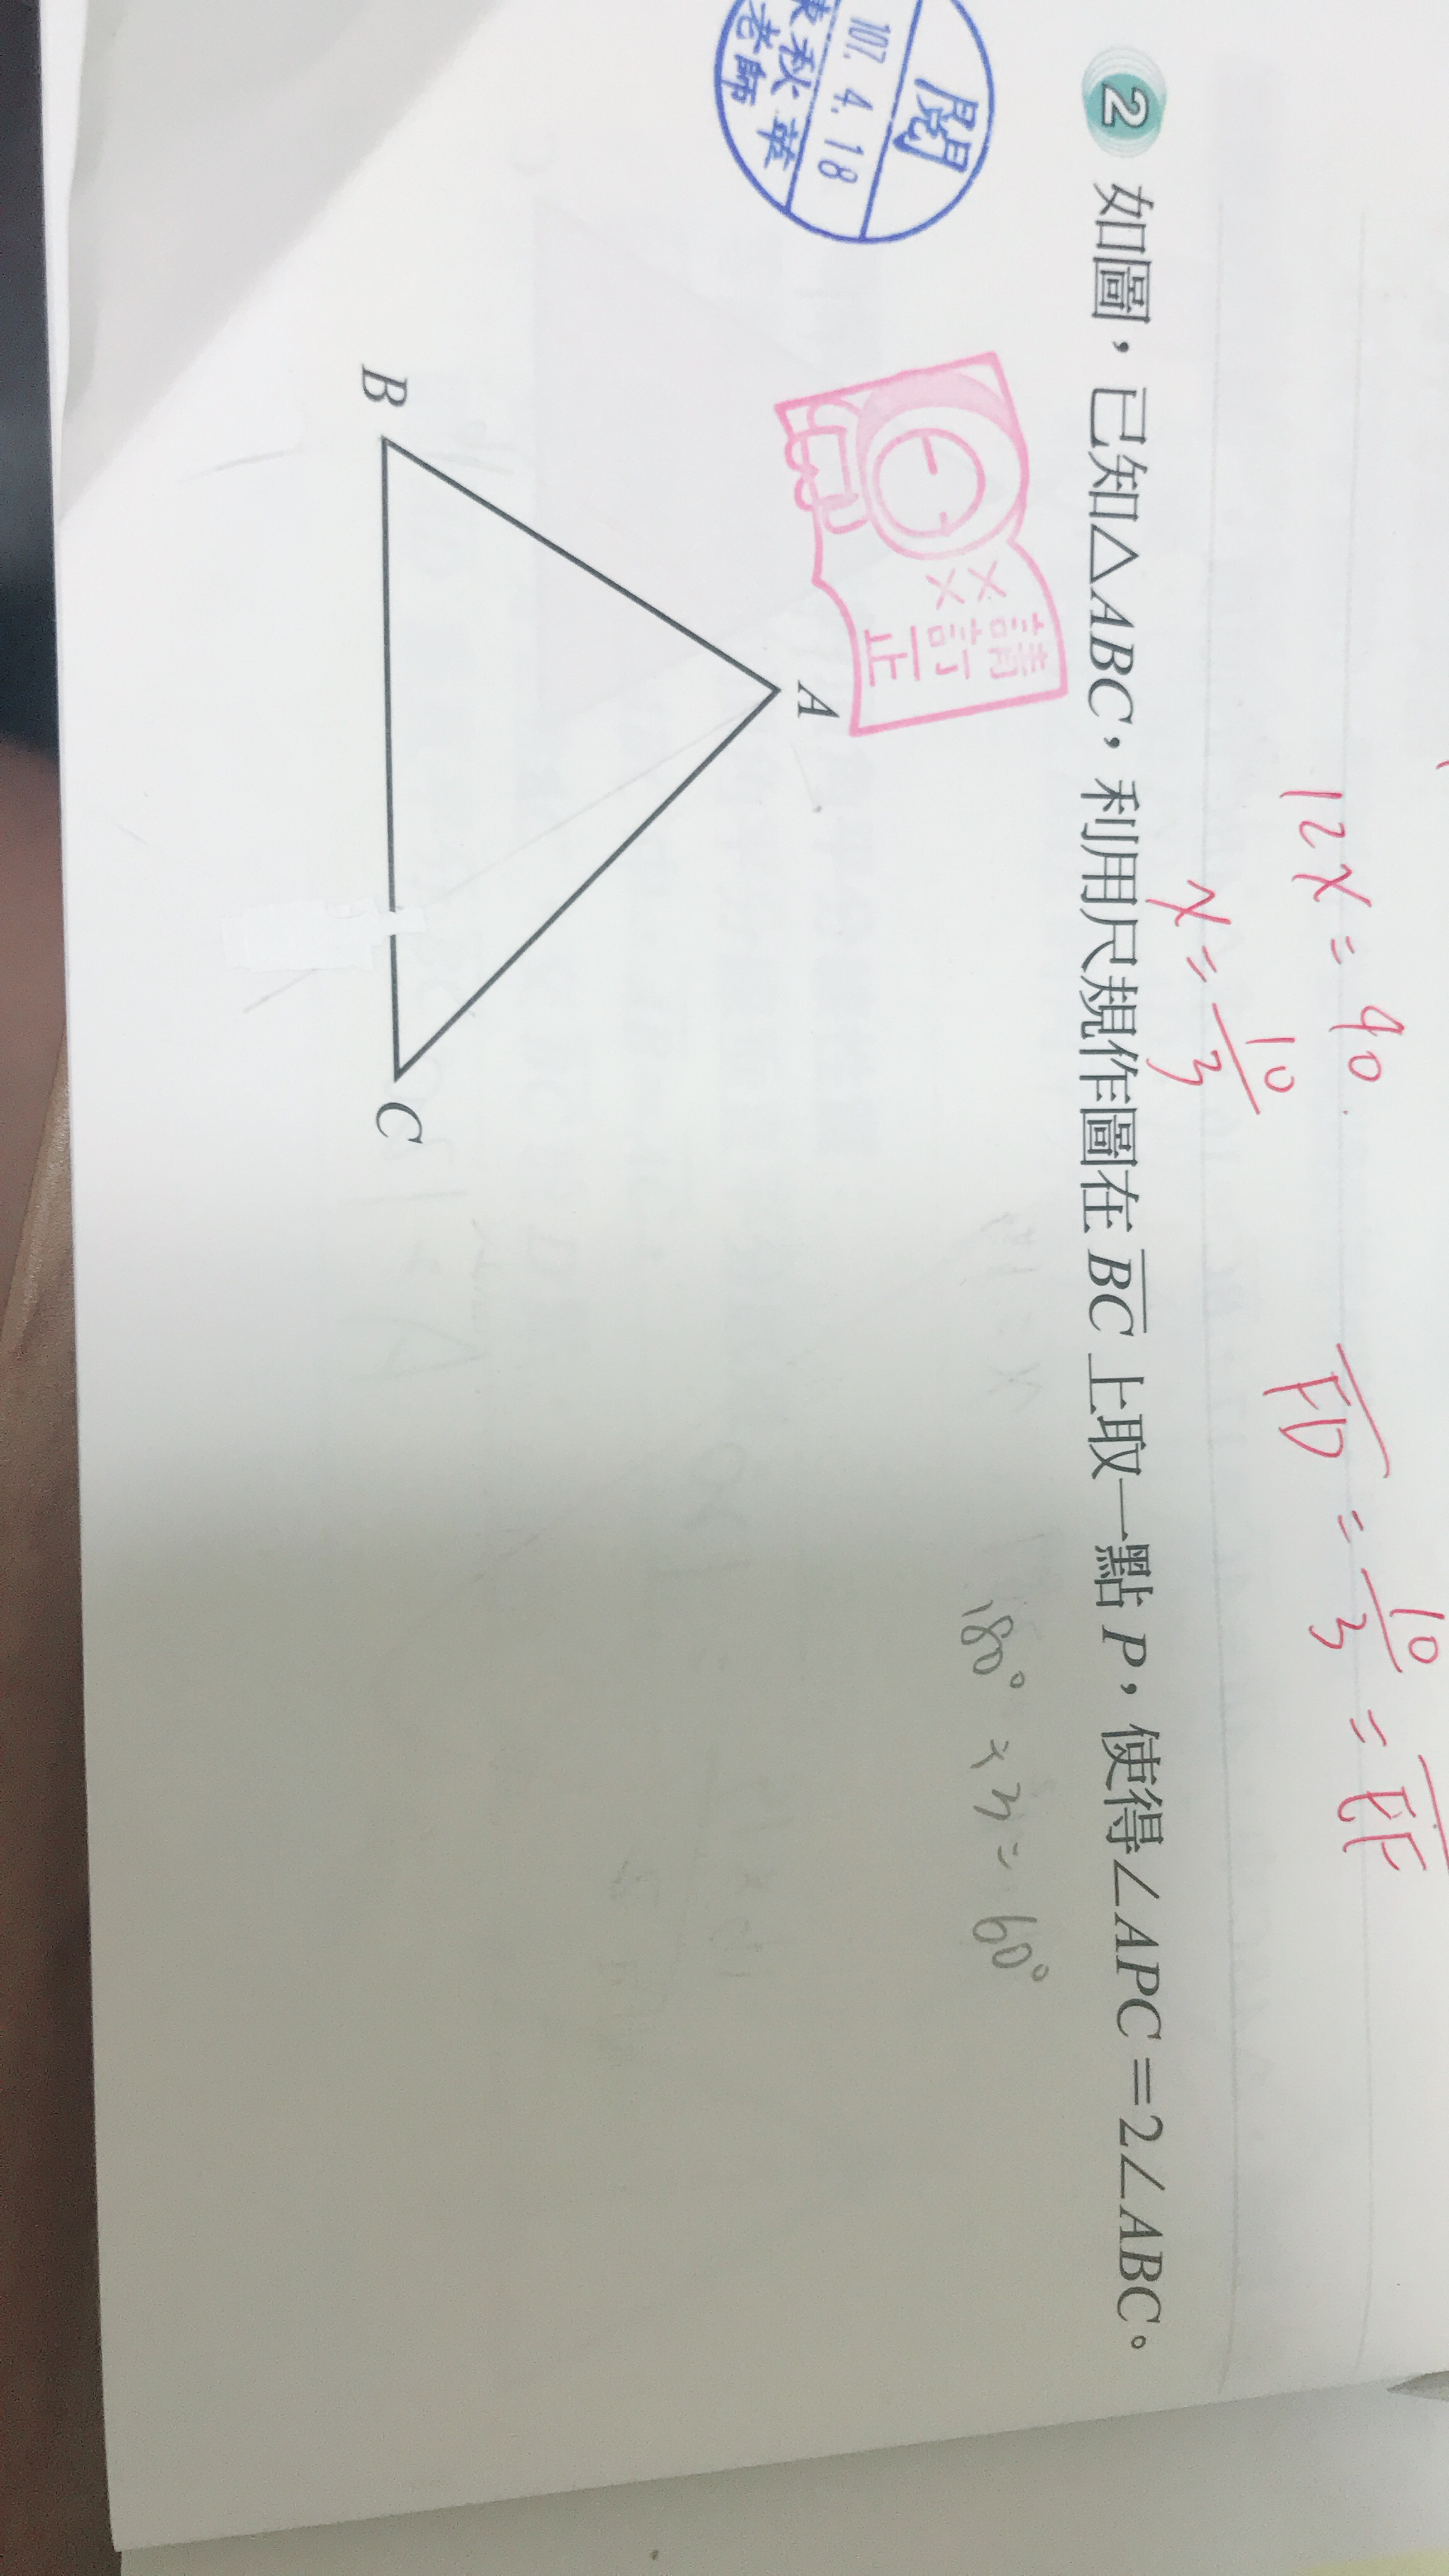 12x = 40.
x = 10/3
FD = 10/3 = EF
2 如圖，已知△ABC，利用尺規作圖在 BC 上取一點 P，使得∠APC＝2∠ABC。
閱
107. 4. 18
秋華
老師
請
訂
正
180° ÷ 3 = 60°
A
B
C